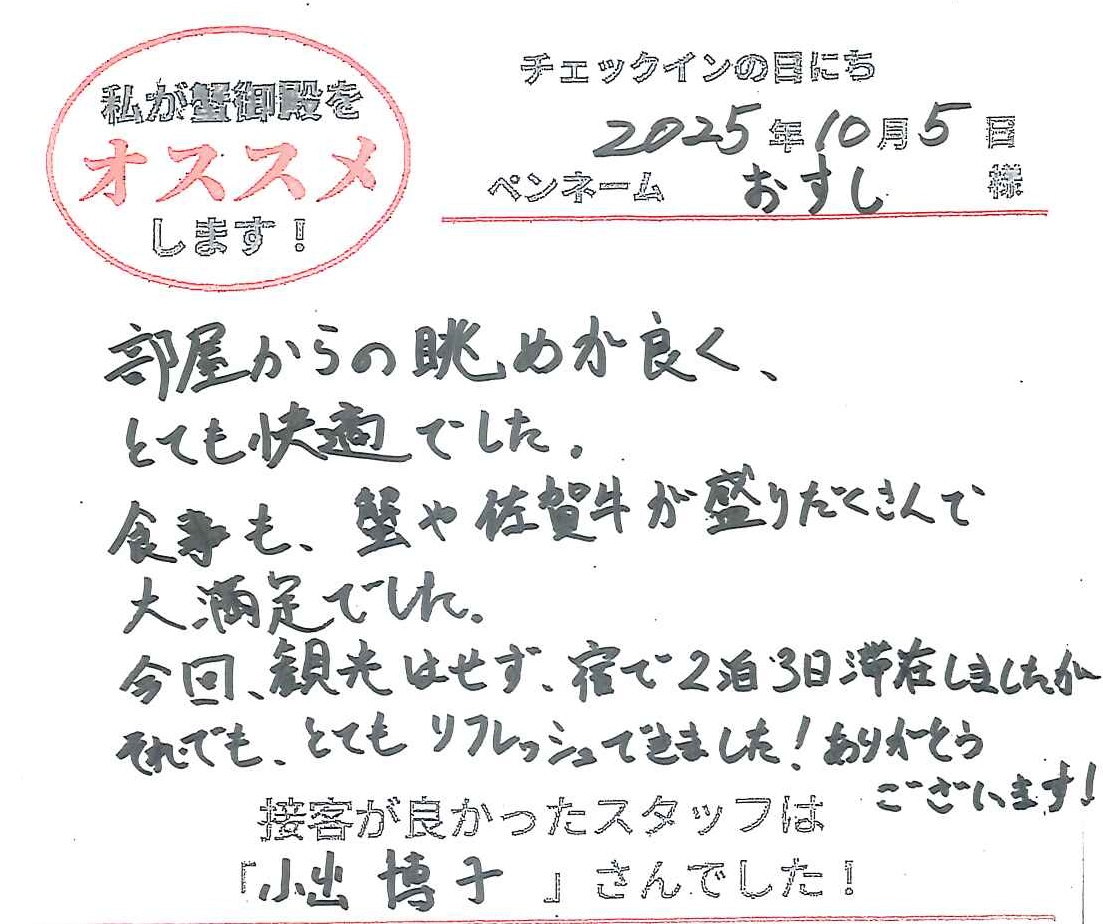 私が蟹御殿を
オススメ
します！
チェックインの日にち
2025年10月5日
ペンネーム おすし 様
部屋からの眺めが良く、
とても快適でした。
食事も、蟹や佐賀牛が盛りだくさんで
大満足でした。
今回、観光はせず、宿で2泊3日滞在しましたが
それでも、とてもリフレッシュできました！ありがとう
ございます！
接客が良かったスタッフは
「小出 博子」さんでした！